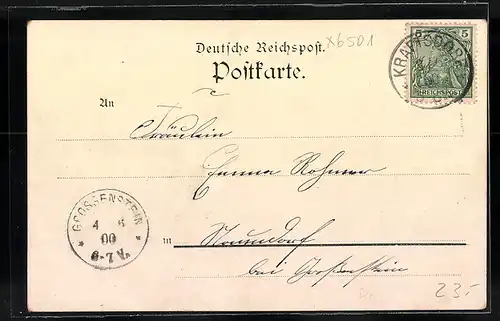 x6501
Deutsche Reichspost.
Postkarte.
5 5
REICHSPOST
KRAFTSDORF
An
Fräulein
Emma Rohmer
in Naundorf
bei Großenstein
GROSSENSTEIN
4 6
00
6-7 N.
23.-